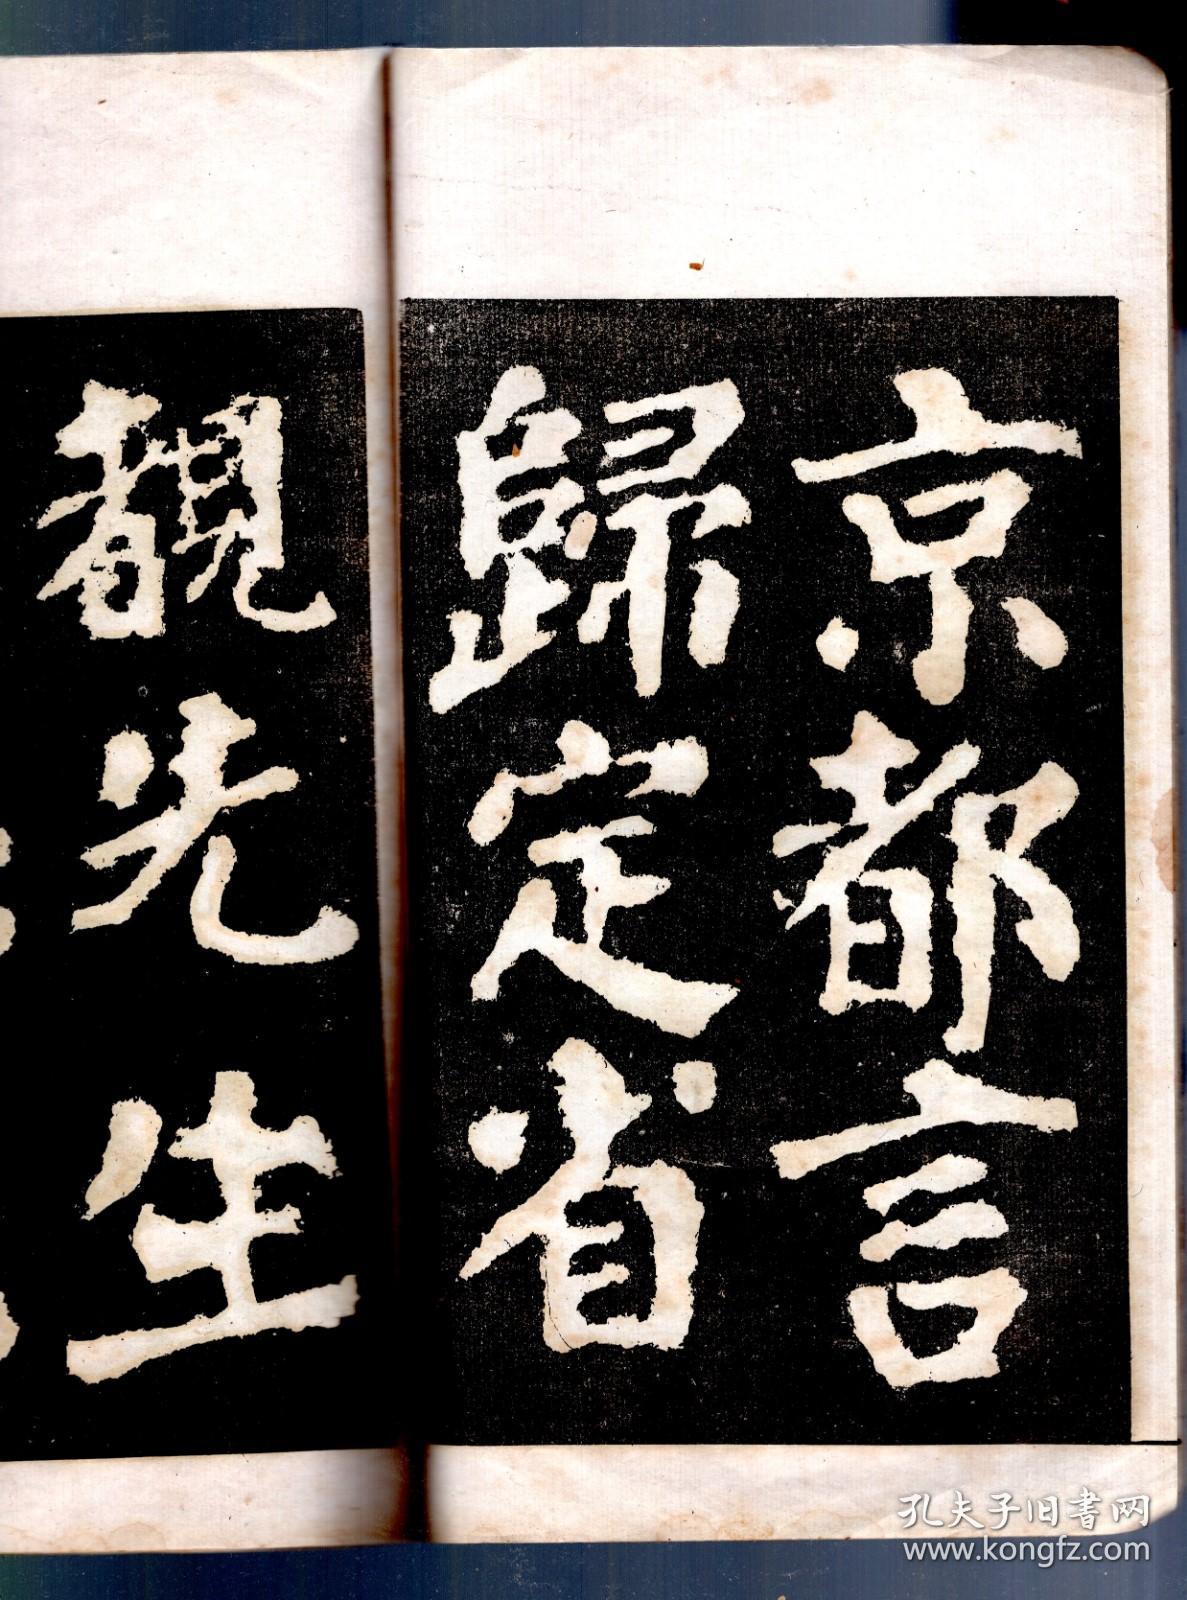 京都言
歸定省
覩先生
孔夫子旧書网
www.kongfz.com